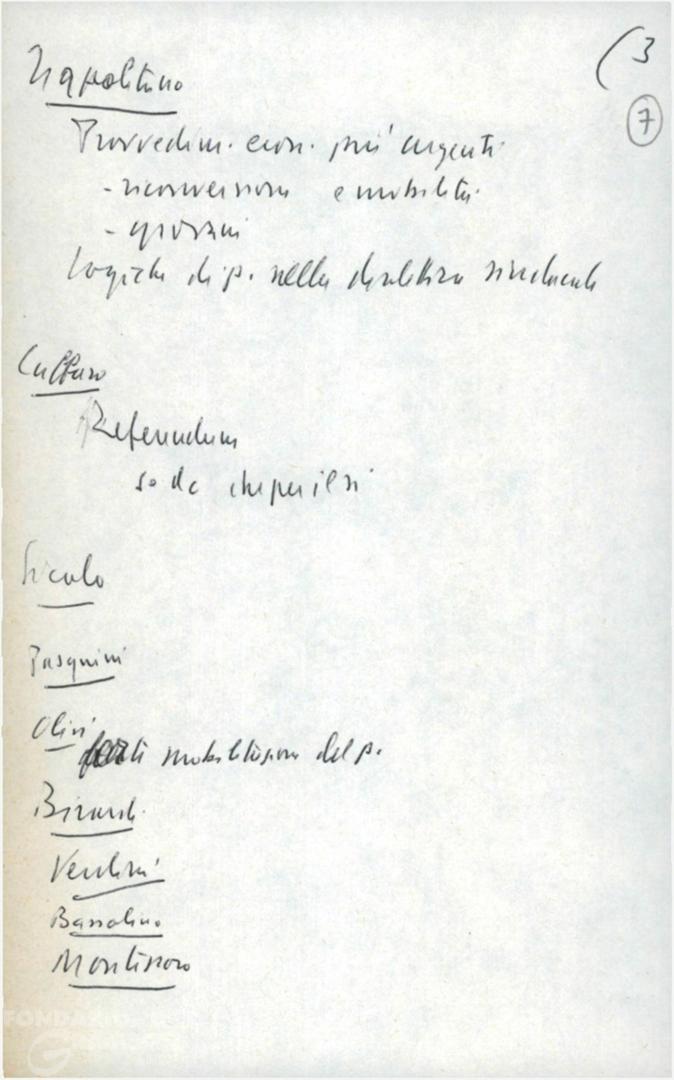 (3
7
Napolitano
Provvedim. econ. più urgenti
- riconversione e mobilità
- giovani
Logiche di p. nella dialettica sindacale
Cuffaro
Referendum
se dc
Siculo
Pasquini
Olivi
mobilitazione del p.
Birardi
Verdini
Bassolino
Montessoro
FONDAZIO
G